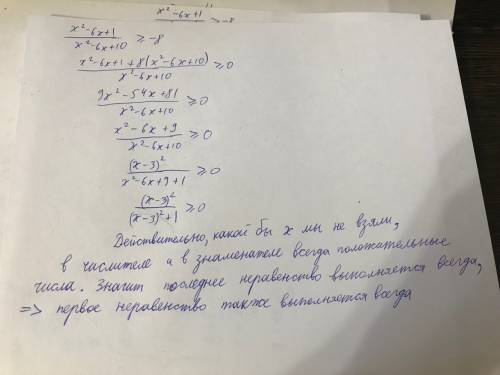 x²-6x+1 / ≥ -8
x²-6x+1 / x²-6x+10 ≥ -8
x²-6x+1+8(x²-6x+10) / x²-6x+10 ≥ 0
9x²-54x+81 / x²-6x+10 ≥ 0
x²-6x+9 / x²-6x+10 ≥ 0
(x-3)² / x²-6x+9+1 ≥ 0
(x-3)² / (x-3)²+1 ≥ 0
Действительно, какой бы x мы не взяли,
в числителе а в знаменателе всегда положительные
числа. Значит последнее неравенство выполняется всегда,
=> первое неравенство также выполняется всегда